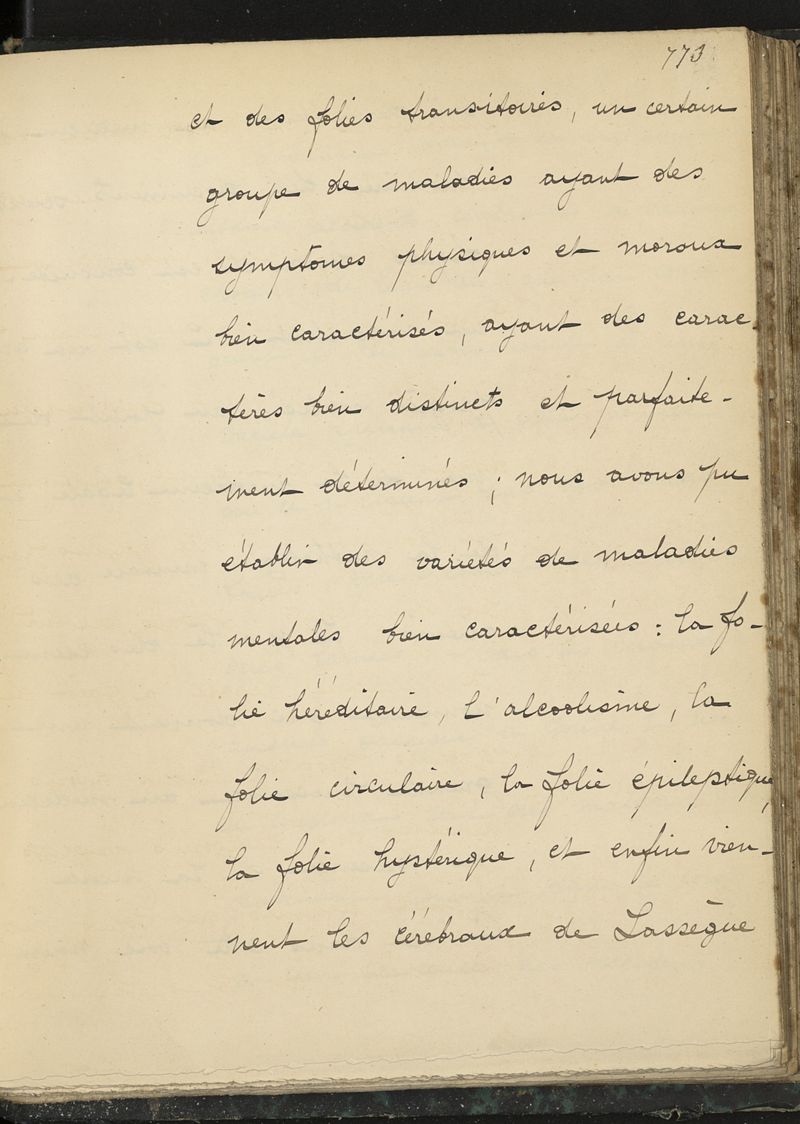 773
et des folies transitoires, un certain
groupe de maladies ayant des
symptômes physiques et moraux
bien caractérisés, ayant des carac
tères bien distincts et parfaite-
ment déterminés ; nous avons pu
établir des variétés de maladies
mentales bien caractérisées : la fo-
lie héréditaire, l'alcoolisme, la
folie circulaire, la folie épileptique,
la folie hystérique, et enfin vien-
nent les cérébraux de Lassègue